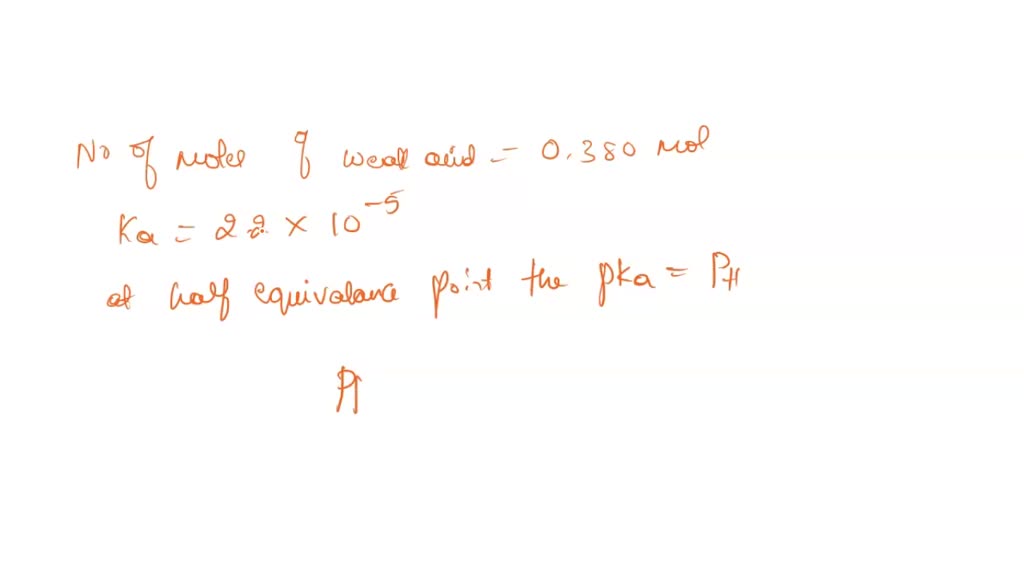 No of moles of weak acid = 0.380 mol
Ka = 22 × 10⁻⁵
at half equivalance point the pka = PH